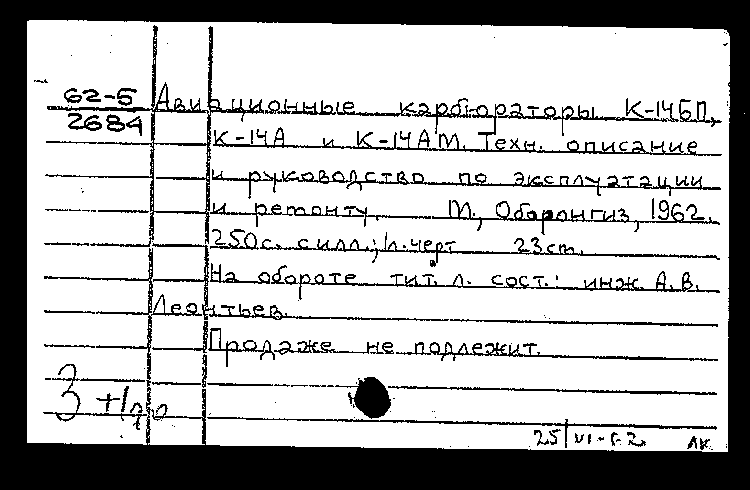 62-5 Авиационные карбюраторы К-14БП,
2684 К-14А и К-14АМ. Техн. описание
и руководство по эксплуатации
и ремонту. М., Оборонгиз, 1962.
250с. с илл.; 1л.черт 23см.
На обороте тит. л. сост.: инж. А.В.
Леонтьев.
Продаже не подлежит.
3
25/VI-62. АК